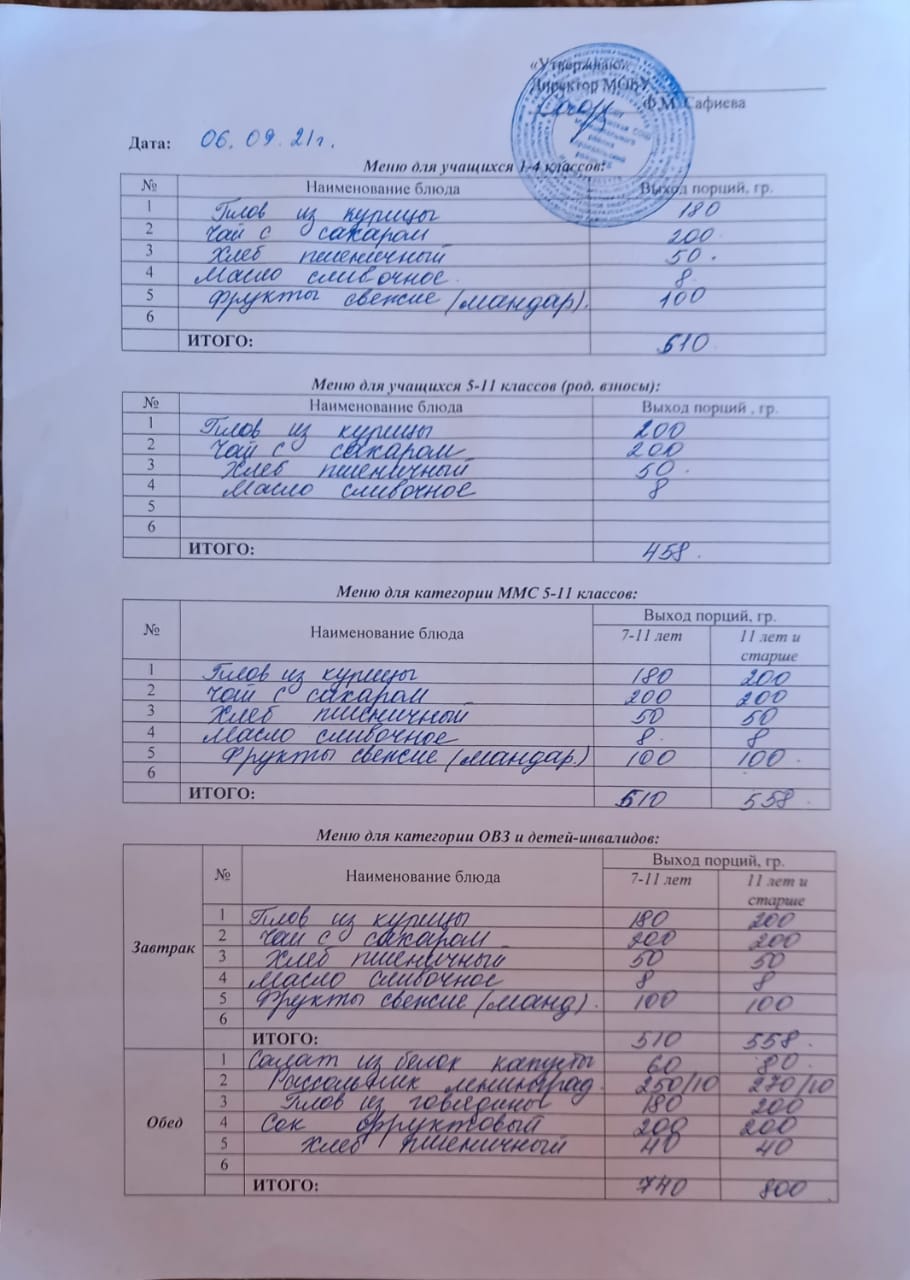 «Утверждаю»
Директор МОБУ
Ф.М. Сафиева
Дата: 06.09.21г.
Меню для учащихся 1-4 классов:
№ Наименование блюда Выход порций, гр.
1 Плов из курицы 180
2 Чай с сахаром 200
3 Хлеб пшеничный 50
4 Масло сливочное 8
5 Фрукты свежие (мандар). 100
6
ИТОГО: 510
Меню для учащихся 5-11 классов (род. взносы):
№ Наименование блюда Выход порций , гр.
1 Плов из курицы 200
2 Чай с сахаром 200
3 Хлеб пшеничный 50
4 Масло сливочное 8
5
6
ИТОГО: 458
Меню для категории ММС 5-11 классов:
№ Наименование блюда Выход порций, гр.
7-11 лет 11 лет и старше
1 Плов из курицы 180 200
2 Чай с сахаром 200 200
3 Хлеб пшеничный 50 50
4 Масло сливочное 8 8
5 Фрукты свежие (мандар.) 100 100
6
ИТОГО: 510 558
Меню для категории ОВЗ и детей-инвалидов:
№ Наименование блюда Выход порций, гр.
7-11 лет 11 лет и старше
Завтрак
1 Плов из курицы 180 200
2 Чай с сахаром 200 200
3 Хлеб пшеничный 50 50
4 Масло сливочное 8 8
5 Фрукты свежие (манд). 100 100
6
ИТОГО: 510 558
Обед
1 Салат из белок капусты 60 80
2 Рассольник ленинград. 250/10 270/10
3 Плов из говядины 180 200
4 Сок фруктовый 200 200
5 Хлеб пшеничный 40 40
6
ИТОГО: 740 800